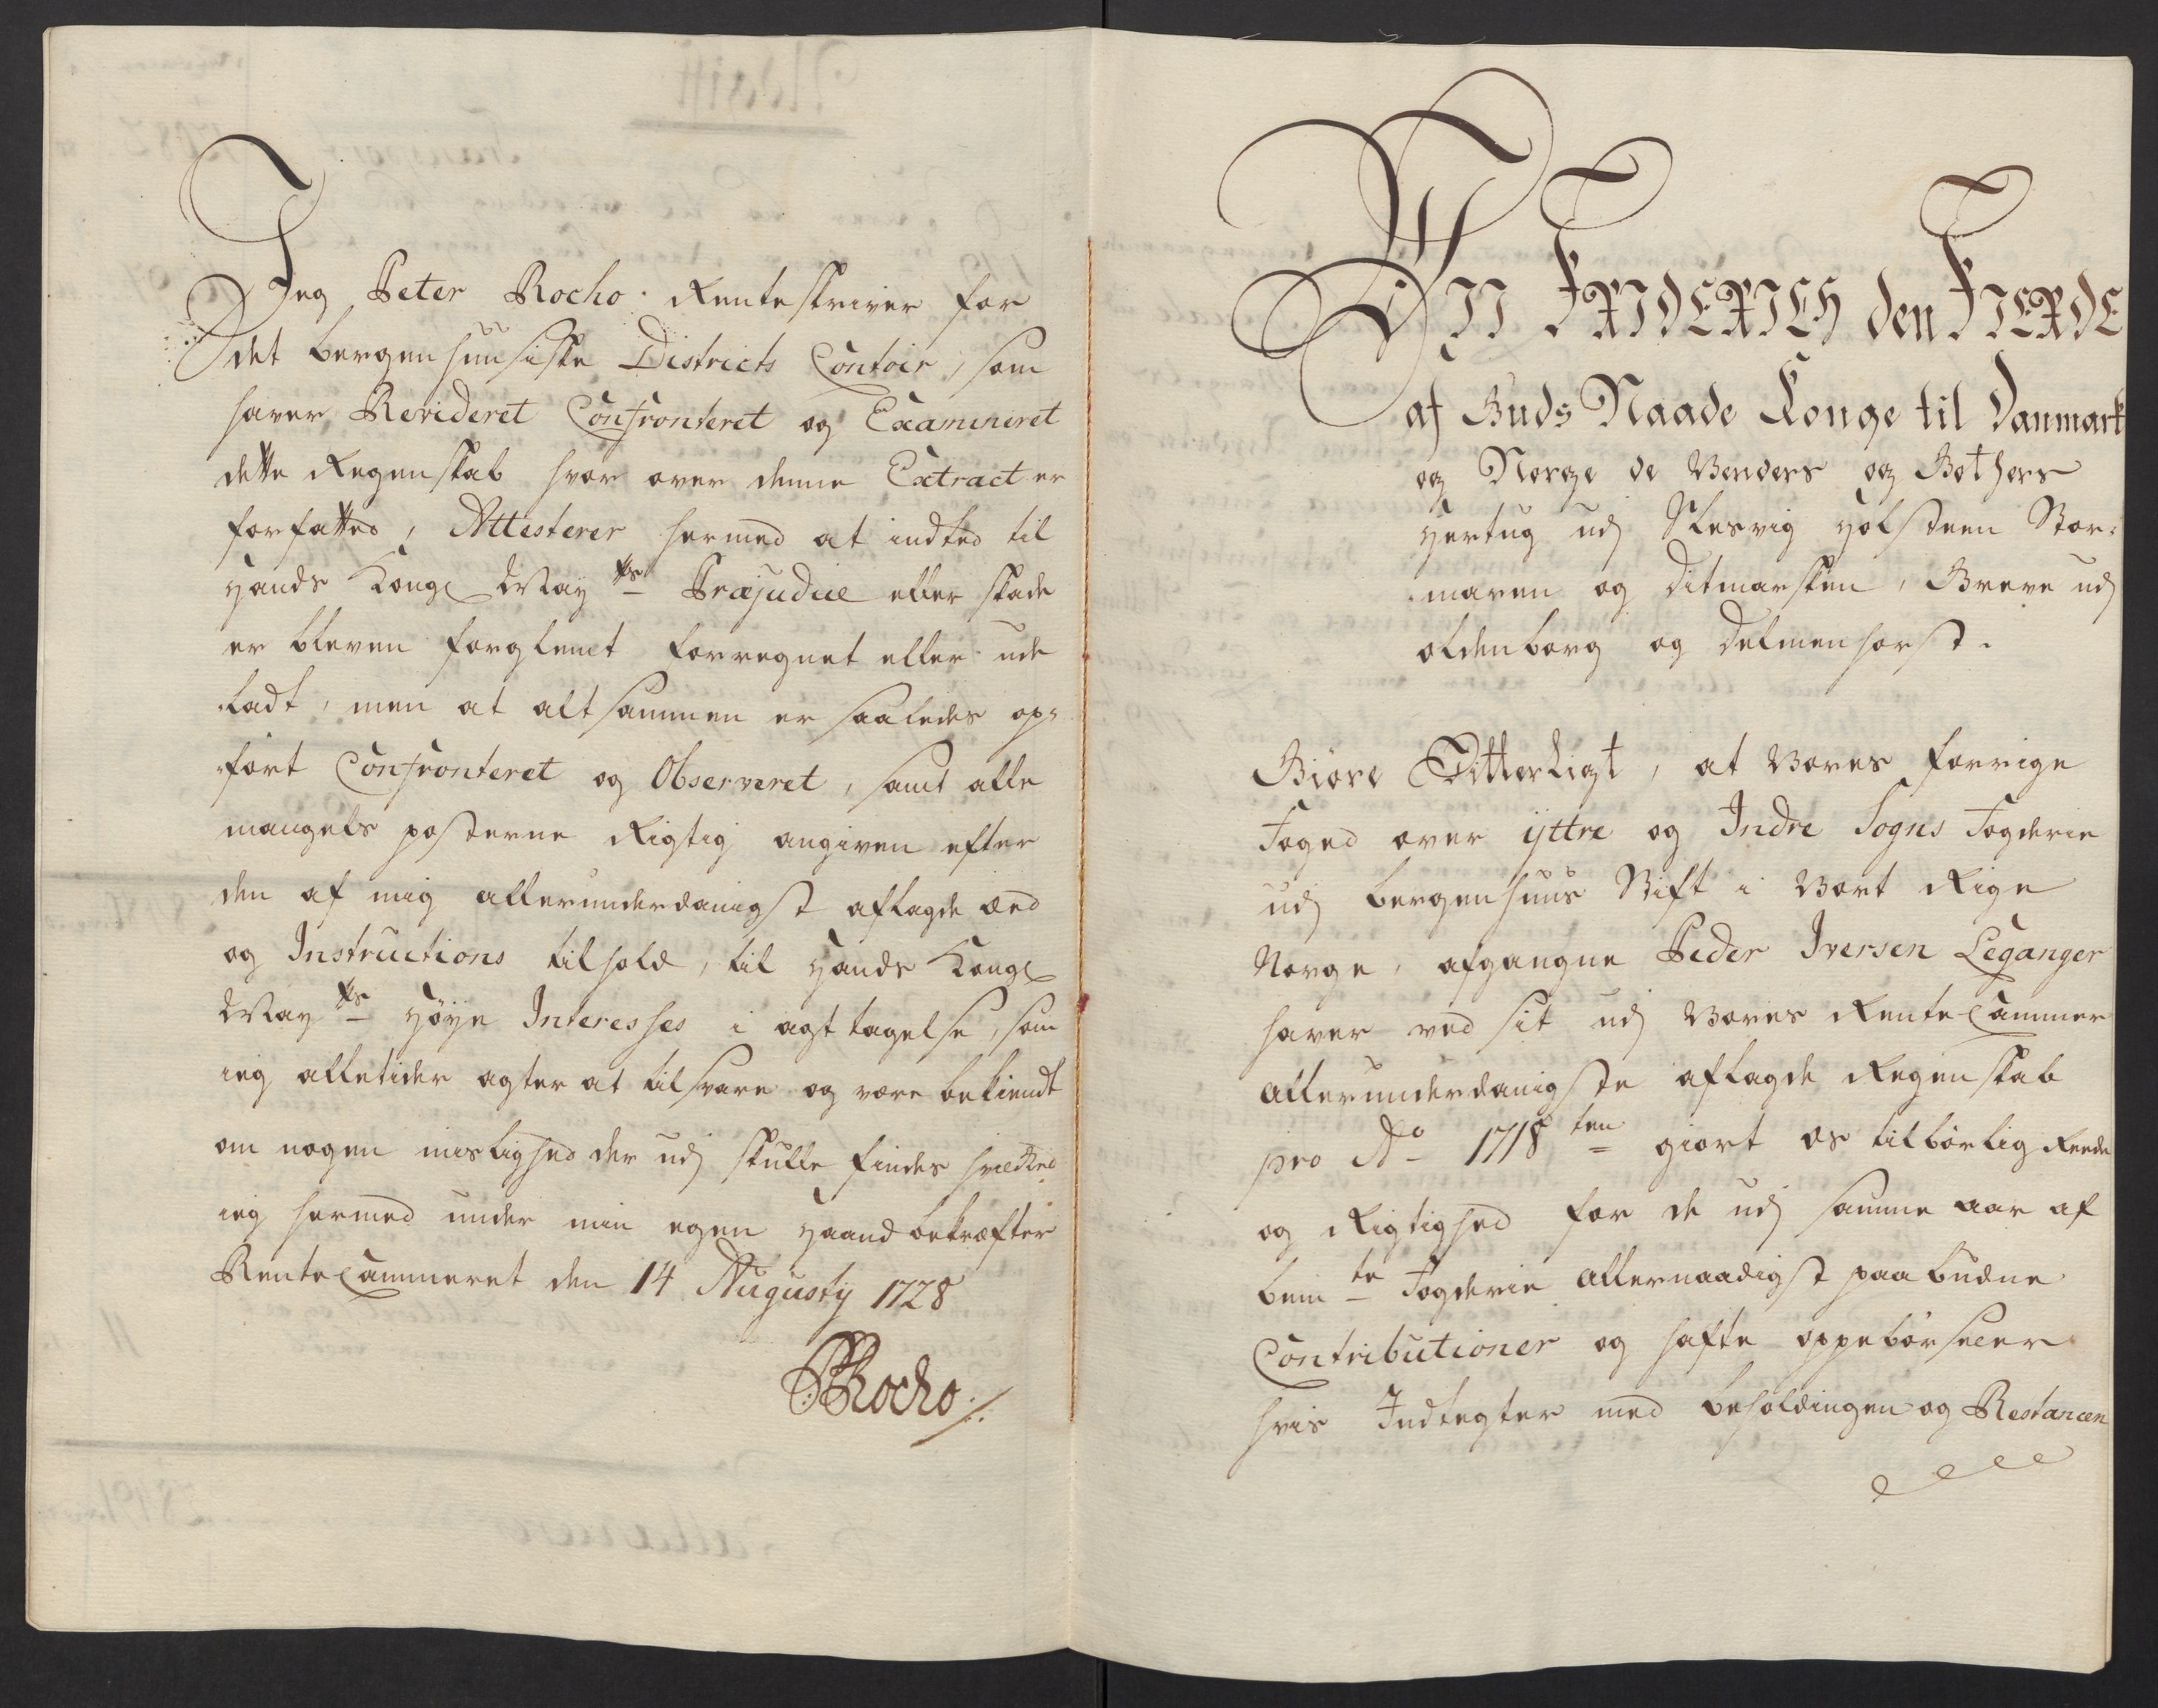 Jeg Peter Rocho Renteskriver for
det bergenhuusiske Districts Contoir, som
haver Revideret Confronteret og Examineret
dette Regenskab hvor over denne Extract er
forfattes, Attesterer hermed at indted til
Hands Kongl May ts Præjudice eller skade
er bleven forglemt forregnet eller ude
ladt, men at altsammen er saaledes op-
ført Confronteret og Observeret, samt alle
mangels posterne Rigtig angiven efter
den af mig allerunderdanigst aflagde æed
og Instructions tilhold, til Hands Kongl
May ts Høye Interesses i agt tagelse, som
ieg alletider agter at tilsvare og være bekiendt
om nogen mislighed der udj skulle findes hvilked
ieg hermed under min egen Haand bekræfter
RenteCammeret den 14 Augustij 1728
PRocho
WII FRIDERICH den FIERDE
af Guds Naade Konge til Danmark
og Norge de Venders og Gothers
Hertug udj Slesvig Holsteen Stor-
maren og Ditmarsken, Greve udj
oldenborg og Delmenhorst.
Giøre Vitterligt, at Vores forrige
Foged over ijttre og Indre Sogns Fogderie
udj bergenhuus Stift i Vort Rige
Norge, afgangne Peder Iversen Leganger
haver ved sit udj Vores RenteCammer
allerunderdanigste aflagde Regenskab
pro Ao 1718 ten giort os tilbørlig Reede
og Rigtighed for de udj samme aar af
bem te Fogderie allernaadigst paabudne
Contributioner og hafte oppebørseler
hvis Indtegter med beholdingen og Restancen